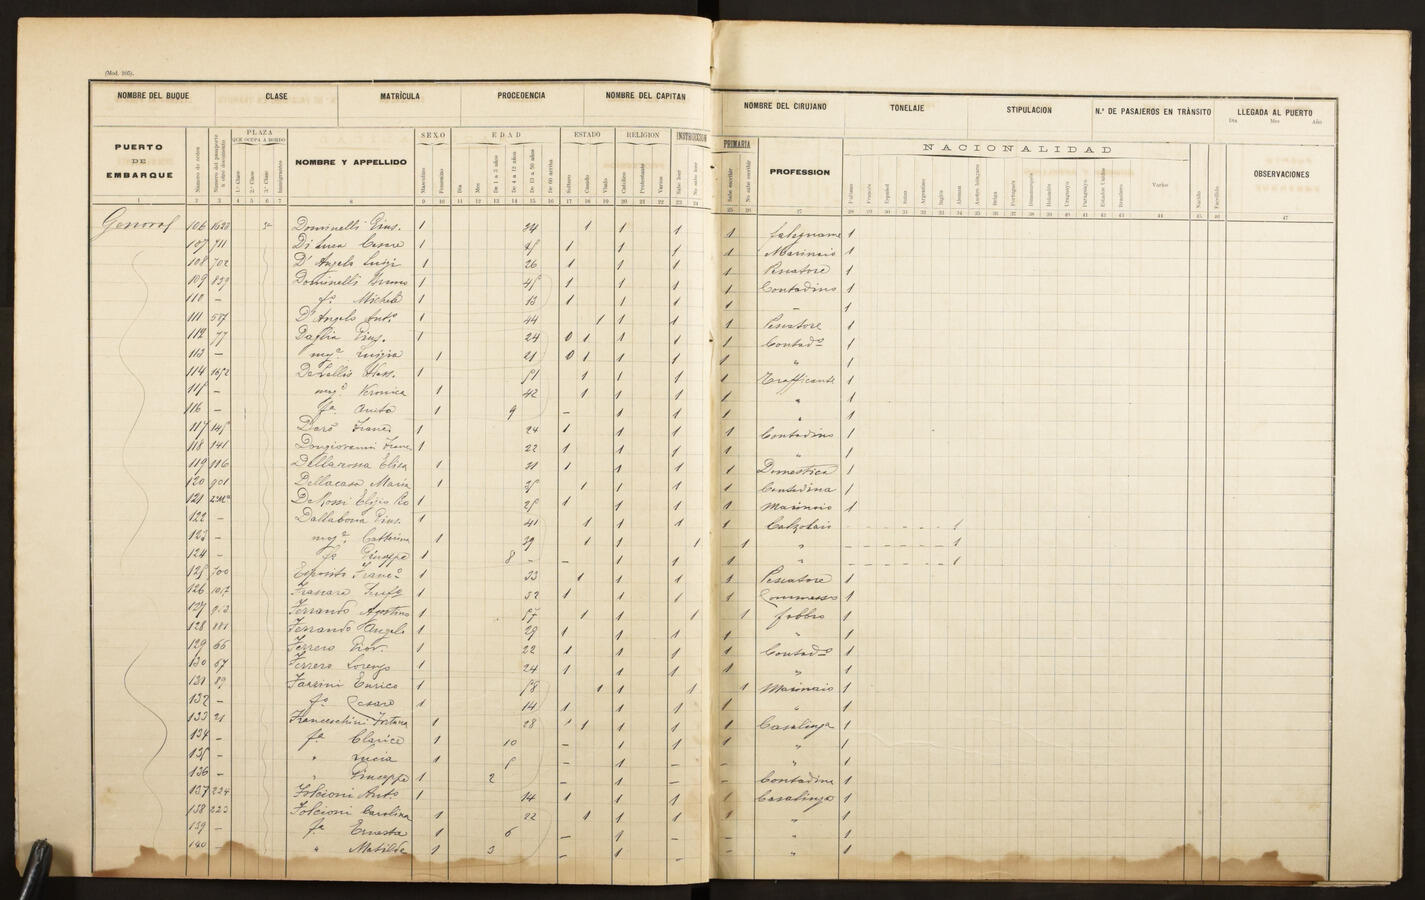 (Mod. 105).
NOMBRE DEL BUQUE CLASE MATRÍCULA PROCEDENCIA NOMBRE DEL CAPITAN NOMBRE DEL CIRUJANO TONELAJE STIPULACION N.º DE PASAJEROS EN TRÁNSITO LLEGADA AL PUERTO
Dia Mes Año
PUERTO DE EMBARQUE PLAZA QUE OCUPA A BORDO NOMBRE Y APPELLIDO SEXO EDAD ESTADO RELIGION INSTRUCCION PRIMARIA PROFESSION NACIONALIDAD OBSERVACIONES
Número de orden 1.ª Clase 2.ª Clase 3.ª Clase Inmigrantes Masculino Femenino Dia Mes De 1 a 3 años De 4 a 12 años De 13 a 50 años De 60 arriba Soltero Casado Viudo Católico Protestante Varios Sabe leer No sabe leer Sabe escribir No sabe escribir Italiano Francés Español Suizo Argentino Inglés Aleman Belga Portugués Holandés Uruguayo Paraguayo Estados Unidos Brasilero Varios Nacido Fallecido
1 2 3 4 5 6 7 8 9 10 11 12 13 14 15 16 17 18 19 20 21 22 23 24 25 26 27 28 29 30 31 32 33 34 35 36 37 38 39 40 41 42 43 44 45 46 47
106 Dominelli Gius. 1 24 1 1 1 1 falegname 1
107 711 Di Luca Cesare 1 1 1 1 1 Marinaio 1
108 702 D'Angelo Luigi 1 26 1 1 1 1 Pescatore 1
109 839 Dominelli Bruno 1 45 1 1 1 1 Contadino 1
110 - fo Michele 1 13 1 1 1 1 " 1
111 587 D'Angelo Anto 1 44 1 1 1 1 Pescatore 1
112 77 Gius. 1 24 0 1 1 1 1 Contado 1
113 - mge Luigia 1 21 0 1 1 1 1 " 1
114 1 51 1 1 1 1 Trafficante 1
115 - mge Veronica 1 42 1 1 1 1 " 1
116 - fa Anita 1 9 - 1 1 1 " 1
117 145 Franc 1 24 1 1 1 1 Contadino 1
118 141 Dongiovanni Franc 1 22 1 1 1 1 " 1
119 116 Dellarossa Elisa 1 21 1 1 1 1 Domestica 1
120 901 Dellacasa Maria 1 1 1 1 1 Contadina 1
121 De Rossi Eligio 1 1 1 1 1 Marinaio 1
122 - Dallabona Gius. 1 41 1 1 1 1 Calzolaio 1
123 - mge Catterina 1 39 1 1 1 1 " 1
124 - fo Giuseppe 1 8 - - 1 1 1 " 1
125 700 Esposito Franco 1 33 1 1 1 1 Pescatore 1
126 1017 1 32 1 1 1 1 Commesso 1
127 Ferrando Agostino 1 57 1 1 1 1 fabbro 1
128 881 Ferrando Angelo 1 29 1 1 1 1 " 1
129 66 Ferrero Giov. 1 22 1 1 1 1 Contado 1
130 67 Ferrero Lorenzo 1 24 1 1 1 1 " 1
131 89 Enrico 1 58 1 1 1 1 Marinaio 1
132 - fo Cesare 1 14 1 1 1 1 " 1
133 21 Franceschini Fortuna 1 28 1 1 1 1 Casalinga 1
134 - fa Clarice 1 10 - 1 1 1 " 1
135 - " Lucia 1 - 1 - - " 1
136 - " Giuseppe 1 2 - 1 - - Contadina 1
137 224 Folcioni Anto 1 14 1 1 1 1 Casalinga 1
138 223 Folcioni Carolina 1 22 1 1 1 1 " 1
139 - fa Ernesta 1 6 - 1 - - " 1
140 - " Matilde 1 3 - 1 - - " 1